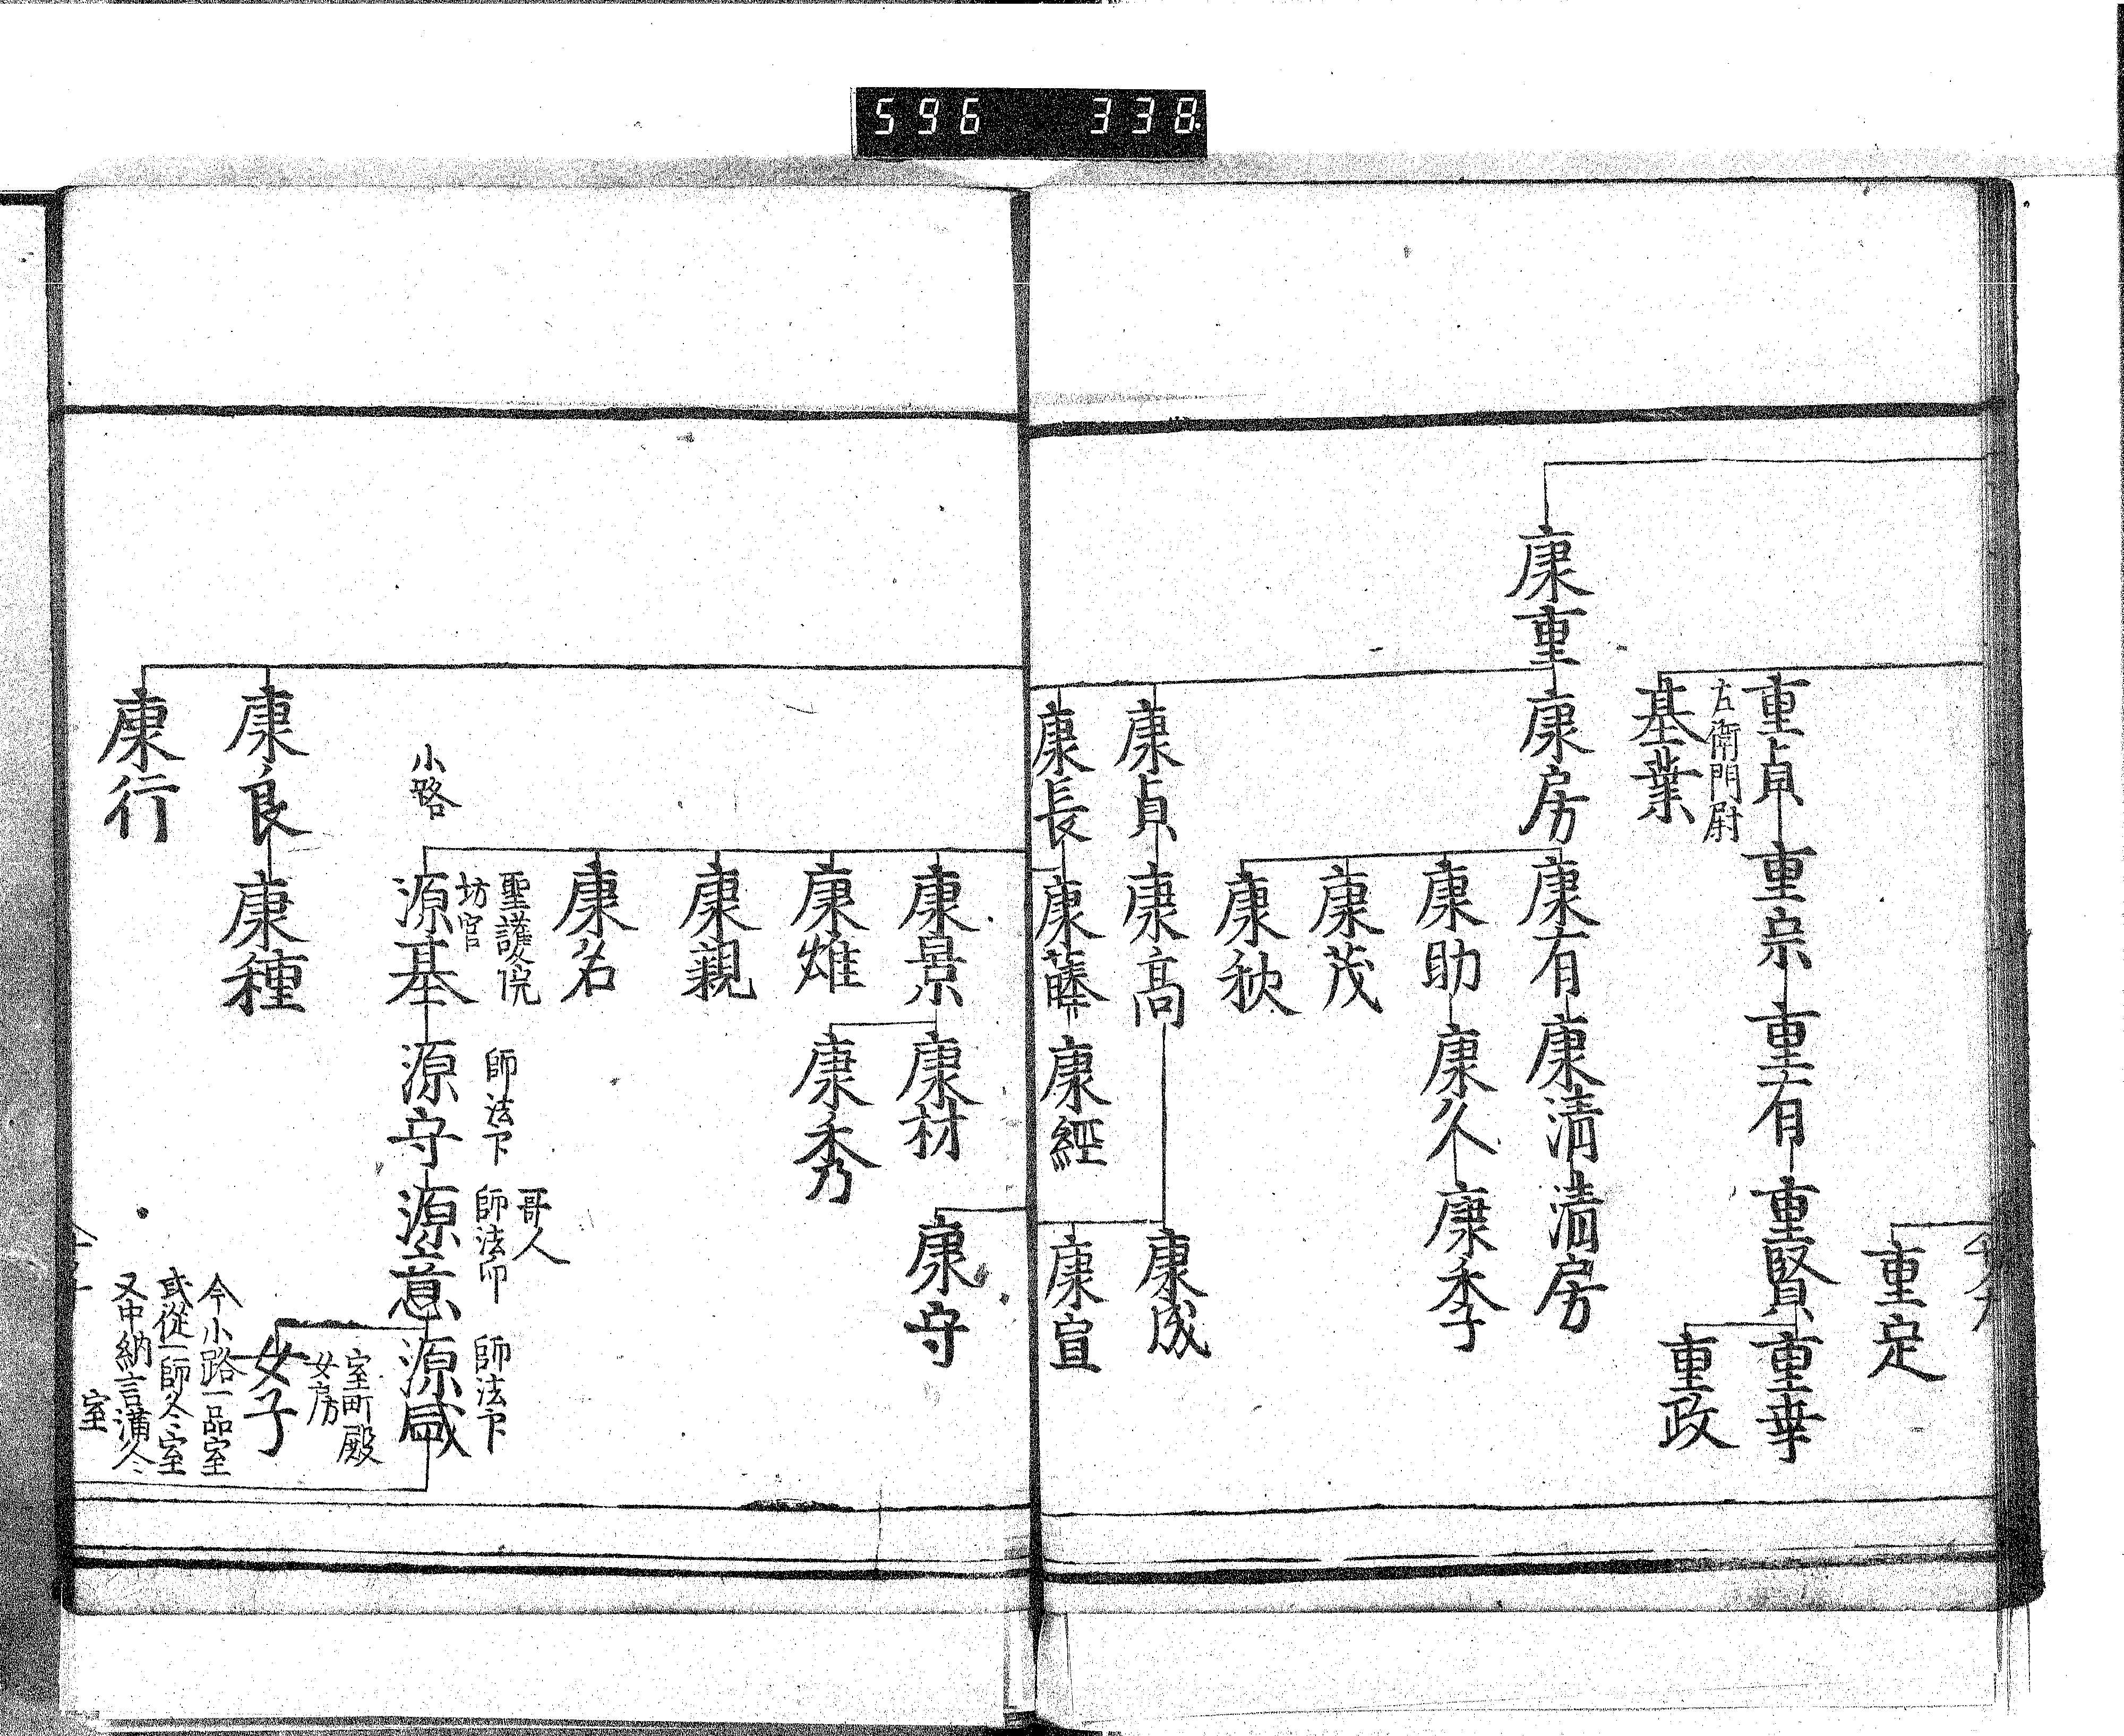 596 338
重定
重貞
重宗
重有
重賢
重幸
重政
左衛門尉
基業
康重
康房
康有
康清
清房
康助
康久
康季
康茂
康秋
康貞
康高
康成
康宣
康長
康藤
康經
康守
康景
康材
康秀
康雄
康親
康名
小路
聖護院
坊官
源基
師法下
源守
哥人
師法印
源意
師法下
源咸
室町殿
女房
女子
今小路一品室
或從一師冬室
又中納言満冬
室
康良
康種
康行